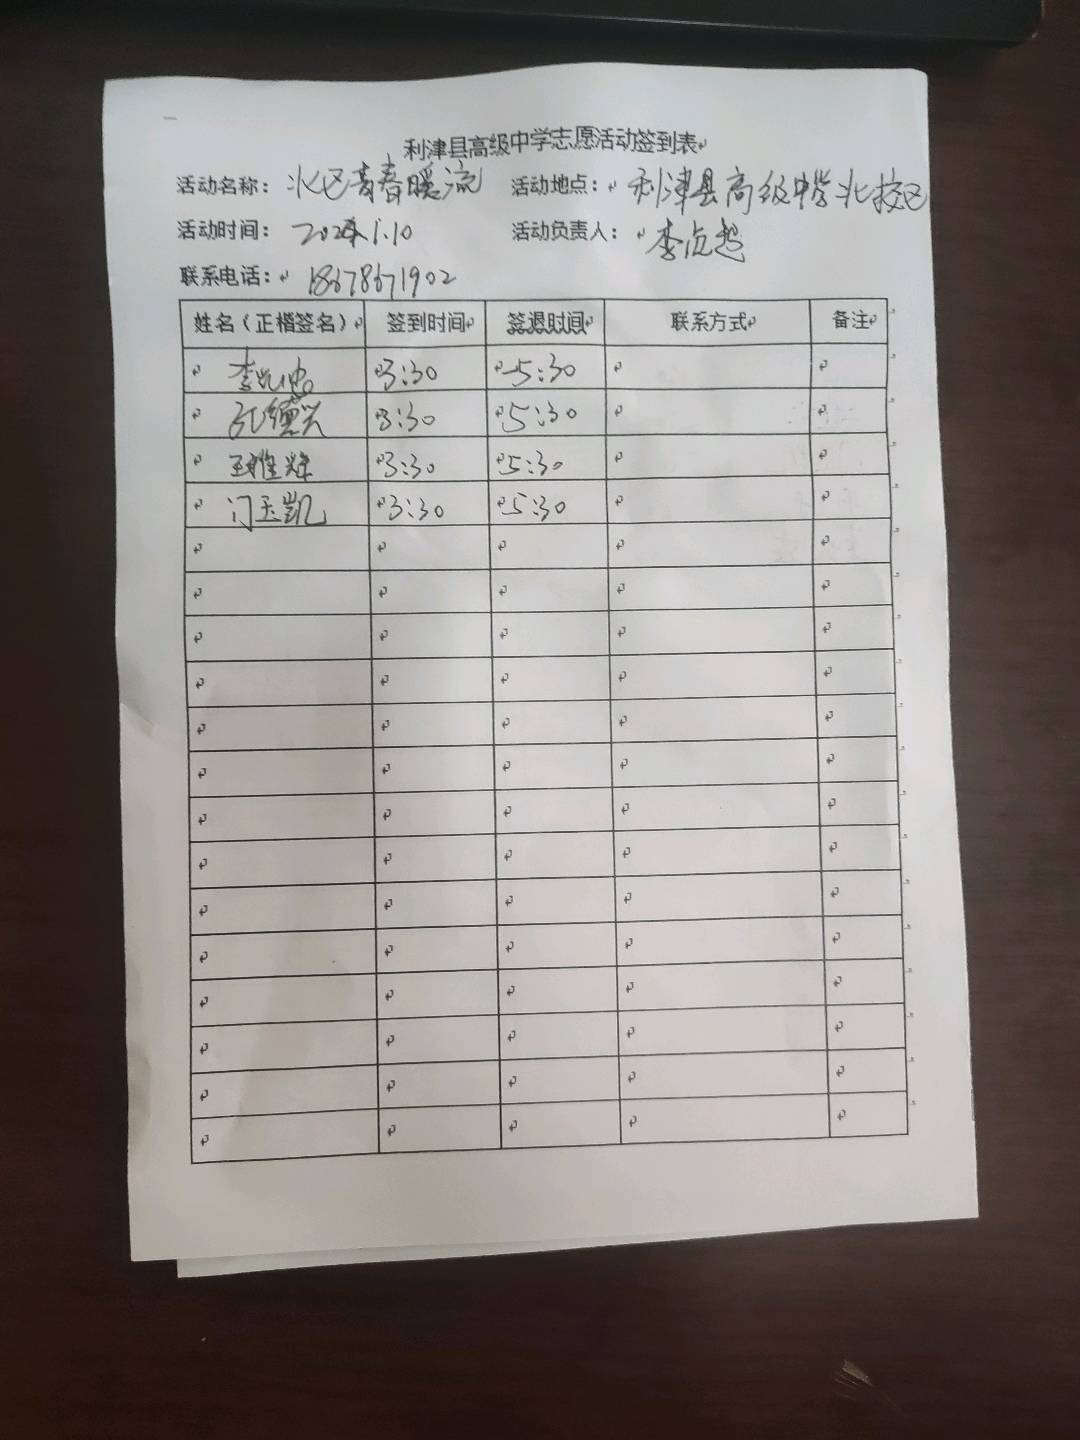 利津县高级中学志愿活动签到表
活动名称： 北区青春暖流 活动地点： 利津县高级中学北校区
活动时间： 1.10 活动负责人： 李贞超
联系电话： 18678671902
姓名（正楷签名） 签到时间 签退时间 联系方式 备注
李 3:30 5:30
孔德兴 3:30 5:30
王雅烨 3:30 5:30
门玉凯 3:30 5:30